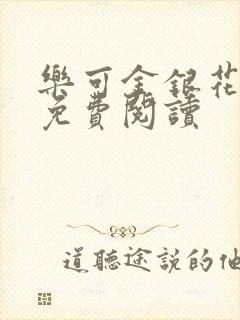 樂可金銀花
免費閱讀
道聽途說的他